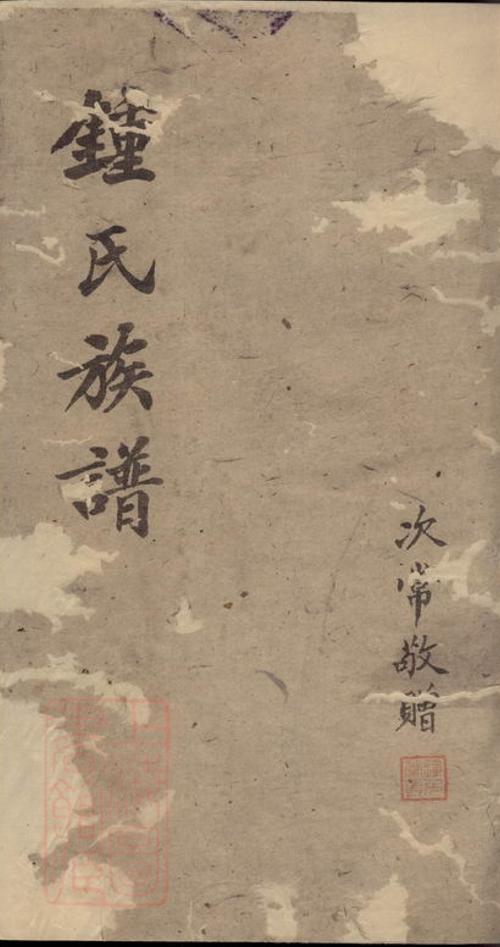 鍾氏族譜
次常敬贈